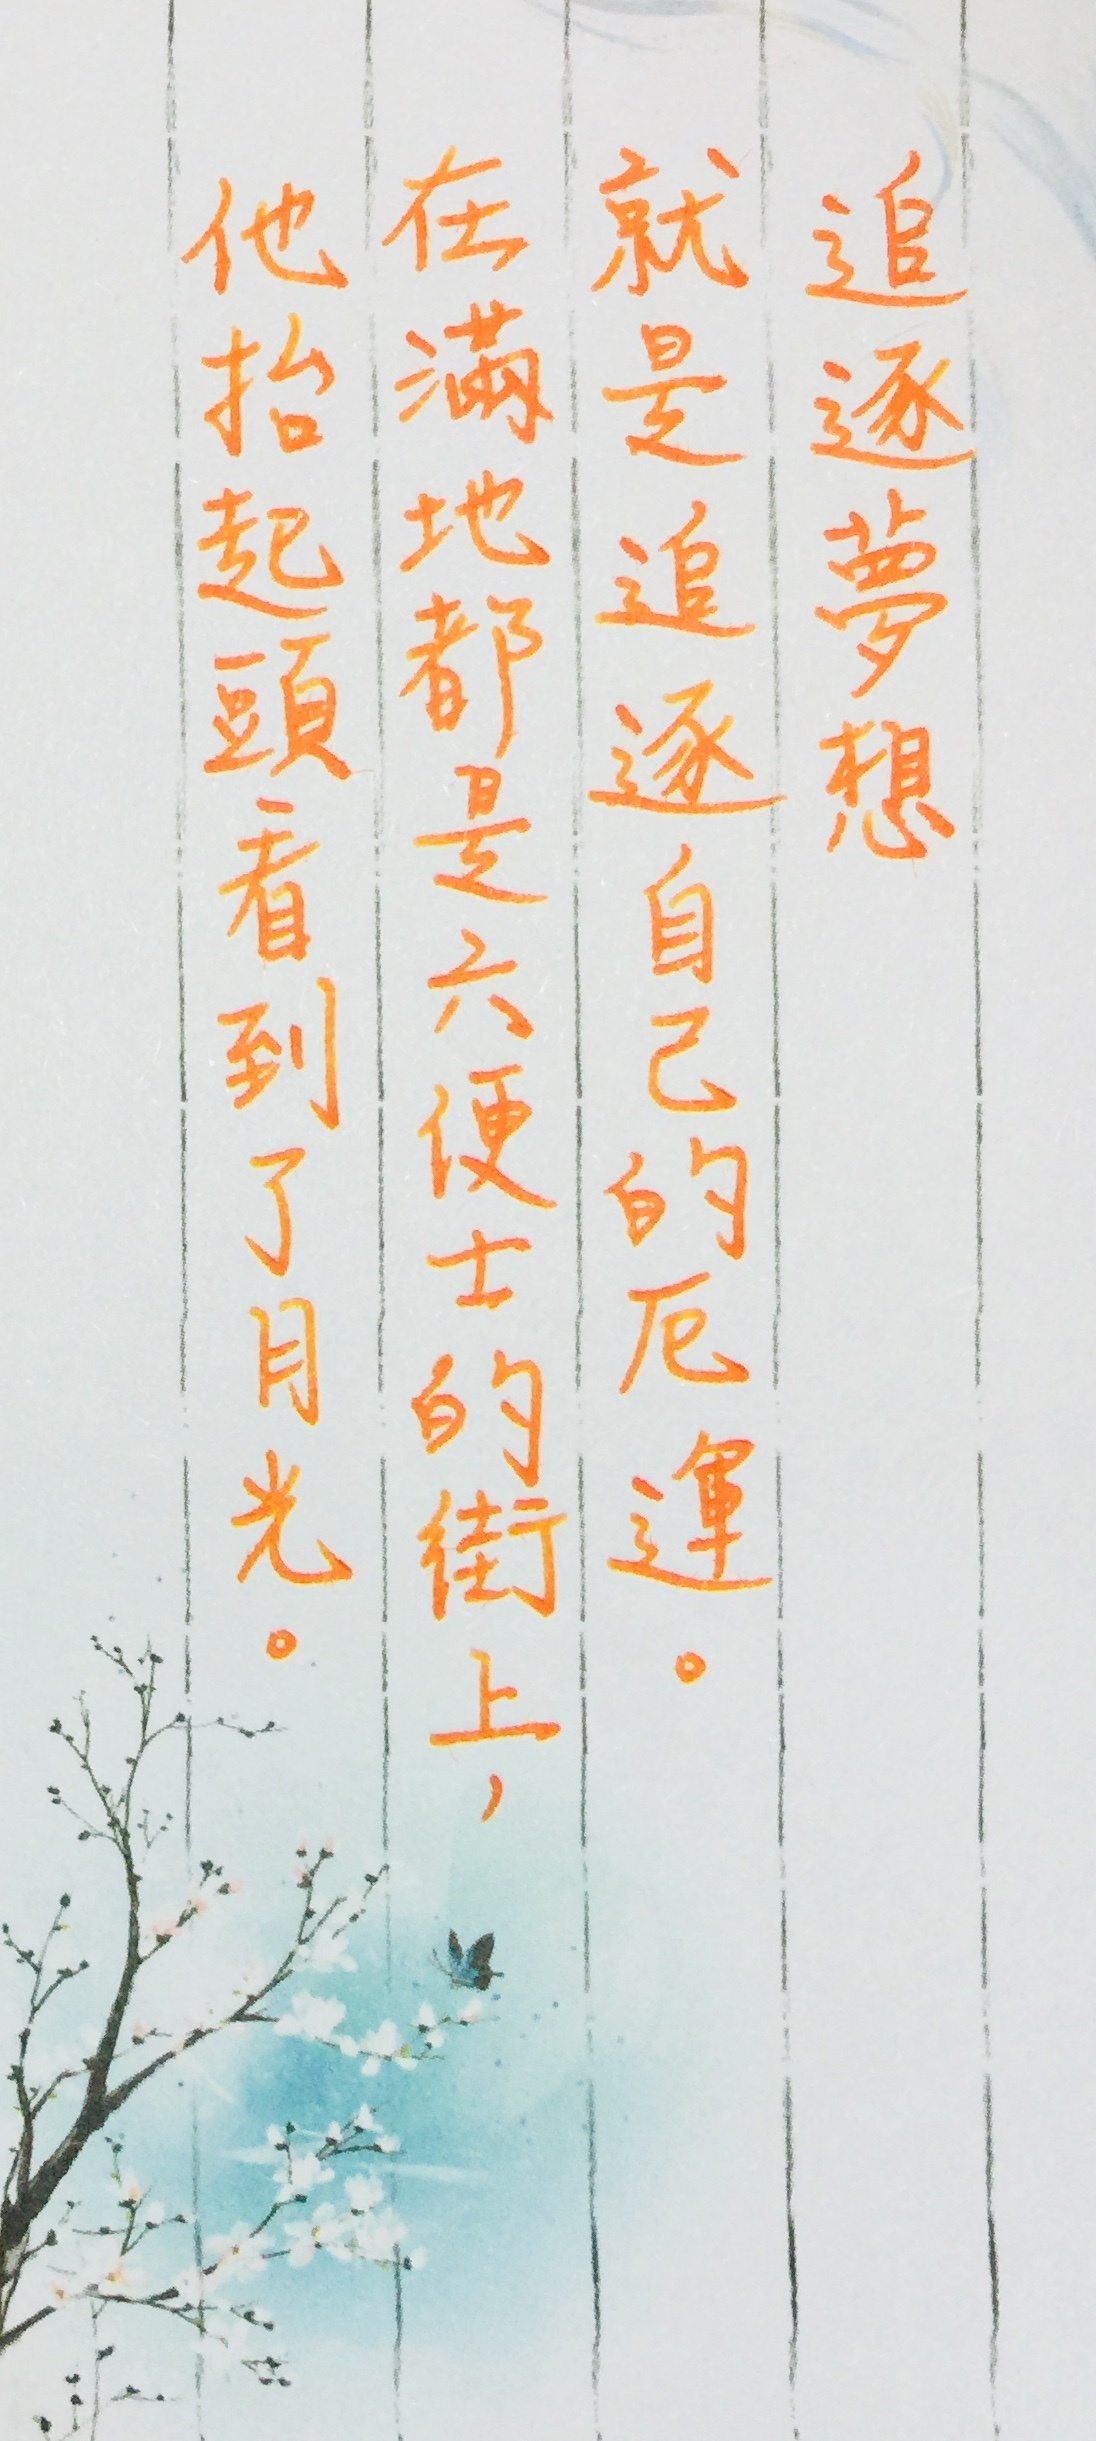 追逐夢想
就是追逐自己的厄運。
在滿地都是六便士的街上，
他抬起頭看到了月光。